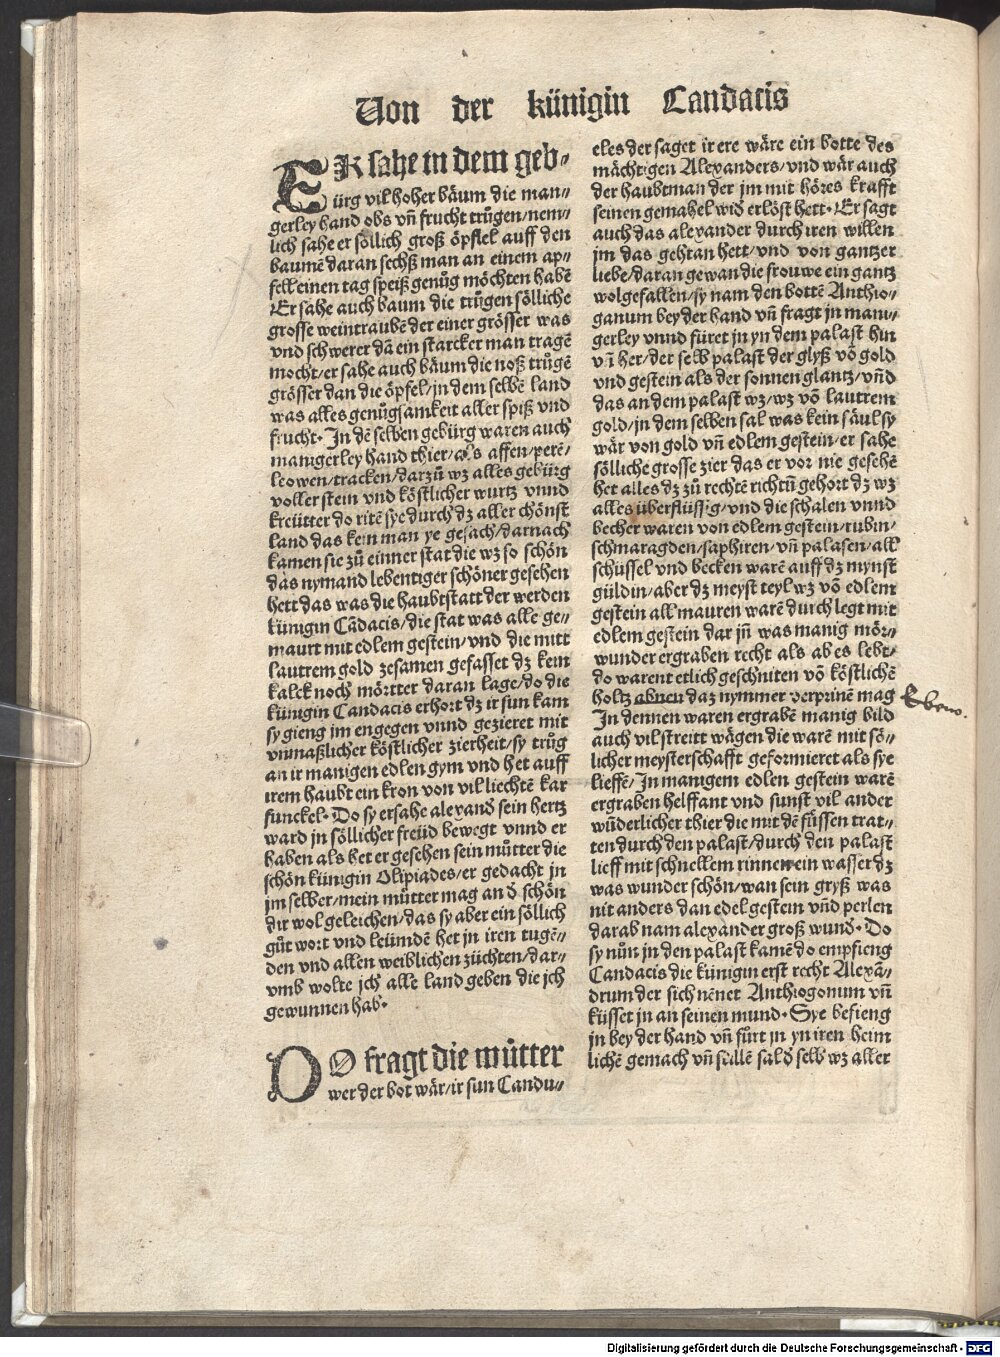 Von der künigin Candacis
ER sahe in dem geb⸗
ürg vil hoher bäum die man⸗
gerley hand obs vñ frucht trůgen/nem⸗
lich sahe er söllich groß öpffel auff den
baumē daran sechß man an einem ap⸗
fell einen tag speiß genůg möchten habē
Er sahe auch baum die trůgen sölliche
grosse weintraubē der einer grösser was
vnd schwerer dā ein starcker man tragē
mocht/er sahe auch bäum die noß trůgē
grösser dan die öpfel/jn dem selbē land
was alles genůgsamkeit aller spiß vnd
frucht. In dē selben gebürg waren auch
manigerley hand thier/als affen/perē/
leowen/tracken/darzů wz alles gebürg
voller stein vnd köstlicher wurtz vnnd
kreütter do ritē sye durch dz aller schönst
land das kein man ye gesach/darnach
kamen sie zů einner stat die wz so schön
das nymand lebentiger schöner gesehen
hett das was die haubtstatt der werden
künigin Cādacis/die stat was alle ge⸗
maurt mit edlem gestein/vnd die mitt
lautrem gold zesamen gefasset dz kein
kalck noch mörtter daran lage/do die
künigin Candacis erhort dz ir sun kam
sy gieng jm engegen vnnd gezieret mit
vnmaßlicher köstlicher zierheit/sy trůg
an ir manigen edlen gym vnd het auff
irem haubt ein kron von vil liechtē kar
funckel. Do sy ersahe alexanđ sein hertz
ward jn söllicher freüd bewegt vnnd er
haben als het er gesehen sein můtter die
schön künigin Olipiades/er gedacht jn
jm selber/mein můtter mag an đ schön
dir wol geleichen/das sy aber ein söllich
gůt wort vnd leümdē het jn iren tugē⸗
den vnd allen weiblichen züchten/dar⸗
vmb wolte jch alle land geben die jch
gewunnen hab.
DO fragt die můtter
wer der bot wär/ir sun Candu⸗
eles der saget ir ere wäre ein botte des
mächtigen Alexanders/vnd wär auch
der haubtman der jm mit höres krafft
seinen gemahel wiđ erlöst hett. Er sagt
auch das alexander durch iren willen
jm das gethan hett/vnd von gantzer
liebe/daran gewan die frouwe ein gantz
wolgefallen/sy nam den bottē Anthio⸗
ganum bey der hand vñ fragt jn mani⸗
gerley vnnd füret jn yn dem palast hin
vñ her/der selb palast der glyß vō gold
vnd gestein als der sonnen glantz/vñd
das an dem palast wz/wz vō lautrem
gold/jn dem selben sal was kein säul sy
wär von gold vñ edlem gestein/er sahe
sölliche grosse zier das er vor nie gesehē
het alles dz zů rechtē richtū gehört dz wz
alles überflüssig/vnd die schalen vnnd
becher waren von edlem gestein/rubin/
schmaragden/saphiren/vñ palasen/all
schüssel vnd becken warē auff dz mynst
güldin/aber dz meyst teyl wz vō edlem
gestein all mauren warē durch legt mit
edlem gestein dar jn was manig mör⸗
wunder ergraben recht als ab es lebt/
do warent etlich geschniten vō köstlichē
holtz abnen daz nymmer verprinē mag
Eben.
In dennen waren ergrabē manig bild
auch vil streitt wägen die warē mit sö⸗
licher meysterschafft geformieret als sye
lieffē/In manigem edlen gestein warē
ergraben helffant vnd sunst vil ander
wūderlicher thier die mit dē füssen trat⸗
ten durch den palast/durch den palast
lieff mit schnellem rinnen ein wasser dz
was wunder schön/wan sein gryß was
nit anders dan edel gestein vñd perlen
darab nam alexander groß wunđ. Do
sy nůn jn den palast kamē do empfieng
Candacis die künigin erst recht Alexā⸗
drum der sich nēnet Anthiogonum vñ
küsset jn an seinen mund. Sye befieng
jn bey der hand vñ fůrt jn yn iren heim
lichē gemach vñ süllē sal đ selb wz aller
Digitalisierung gefördert durch die Deutsche Forschungsgemeinschaft - DFG